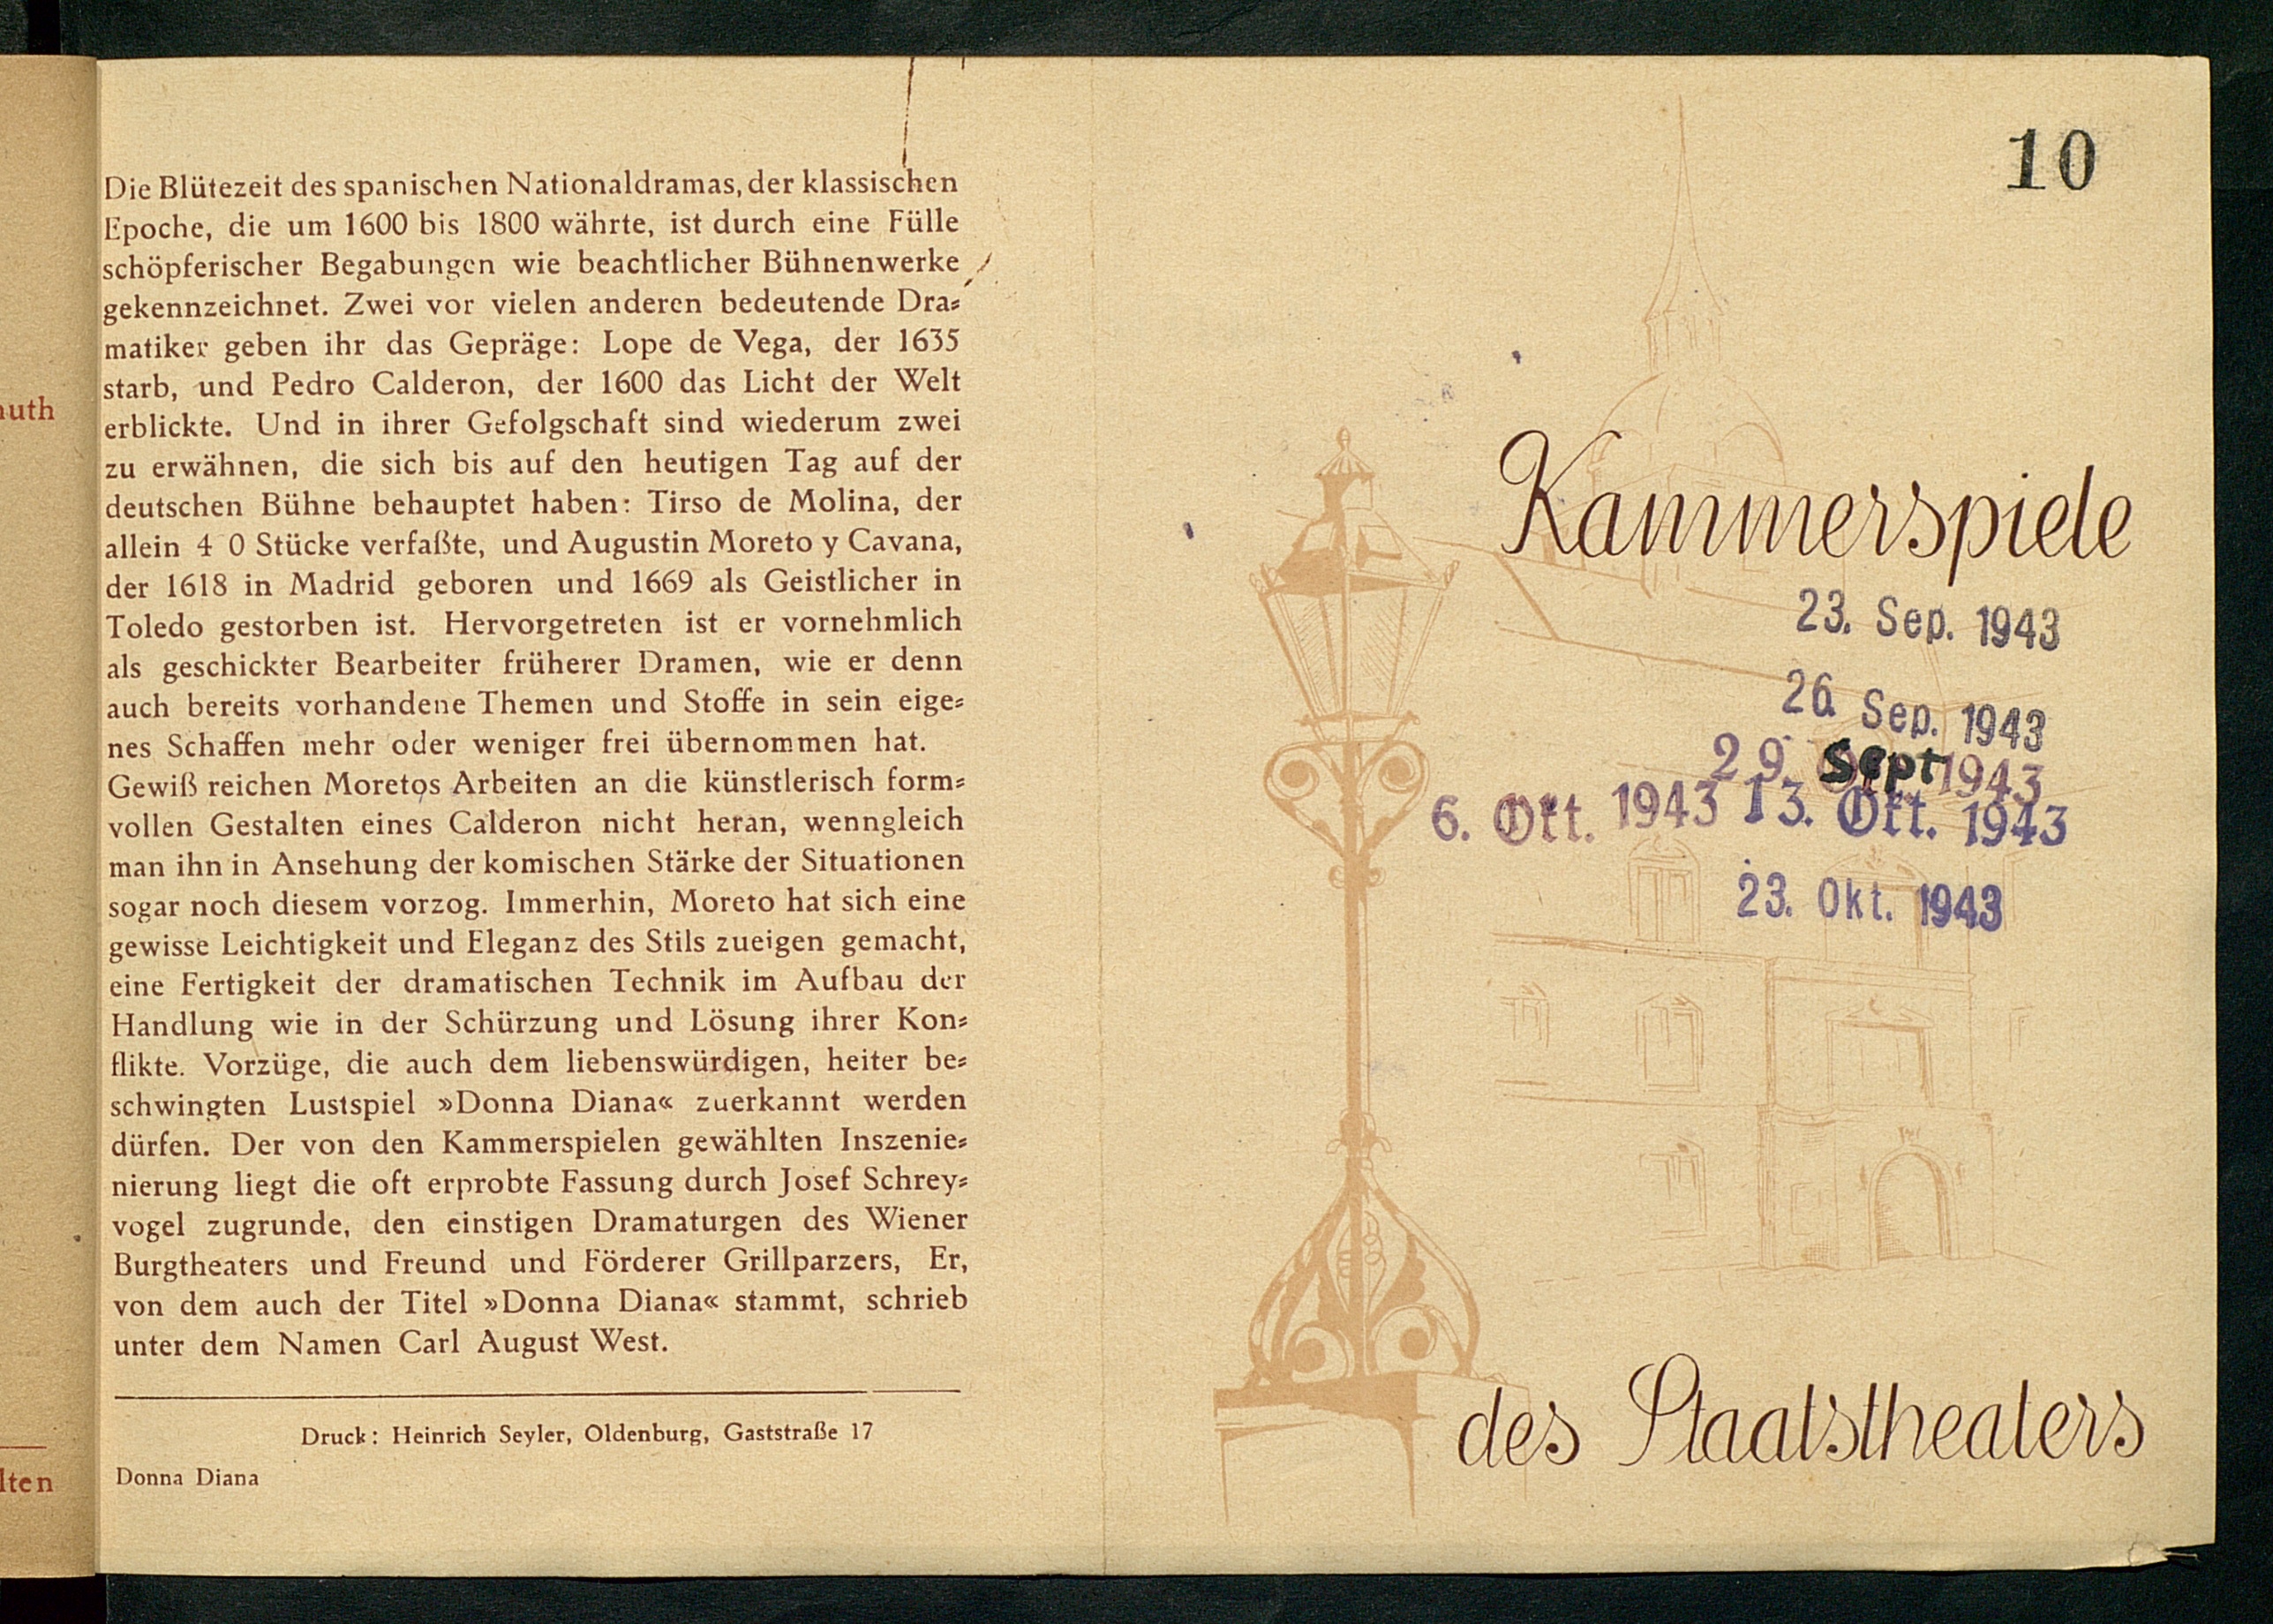 muth
lten
Die Blütezeit des spanischen Nationaldramas, der klassischen
Epoche, die um 1600 bis 1800 währte, ist durch eine Fülle
schöpferischer Begabungen wie beachtlicher Bühnenwerke
gekennzeichnet. Zwei vor vielen anderen bedeutende Dra=
matiker geben ihr das Gepräge: Lope de Vega, der 1635
starb, und Pedro Calderon, der 1600 das Licht der Welt
erblickte. Und in ihrer Gefolgschaft sind wiederum zwei
zu erwähnen, die sich bis auf den heutigen Tag auf der
deutschen Bühne behauptet haben: Tirso de Molina, der
allein 4 0 Stücke verfaßte, und Augustin Moreto y Cavana,
der 1618 in Madrid geboren und 1669 als Geistlicher in
Toledo gestorben ist. Hervorgetreten ist er vornehmlich
als geschickter Bearbeiter früherer Dramen, wie er denn
auch bereits vorhandene Themen und Stoffe in sein eige=
nes Schaffen mehr oder weniger frei übernommen hat.
Gewiß reichen Moretos Arbeiten an die künstlerisch form=
vollen Gestalten eines Calderon nicht heran, wenngleich
man ihn in Ansehung der komischen Stärke der Situationen
sogar noch diesem vorzog. Immerhin, Moreto hat sich eine
gewisse Leichtigkeit und Eleganz des Stils zueigen gemacht,
eine Fertigkeit der dramatischen Technik im Aufbau der
Handlung wie in der Schürzung und Lösung ihrer Kon=
flikte. Vorzüge, die auch dem liebenswürdigen, heiter be=
schwingten Lustspiel »Donna Diana« zuerkannt werden
dürfen. Der von den Kammerspielen gewählten Inszenie=
nierung liegt die oft erprobte Fassung durch Josef Schrey=
vogel zugrunde, den einstigen Dramaturgen des Wiener
Burgtheaters und Freund und Förderer Grillparzers, Er,
von dem auch der Titel »Donna Diana« stammt, schrieb
unter dem Namen Carl August West.
Druck: Heinrich Seyler, Oldenburg, Gaststraße 17
Donna Diana
10
Kammerspiele
23. Sep. 1943
26. Sep. 1943
29. Sept 1943
6. Okt. 1943 13. Okt. 1943
23. Okt. 1943
des Staatstheaters